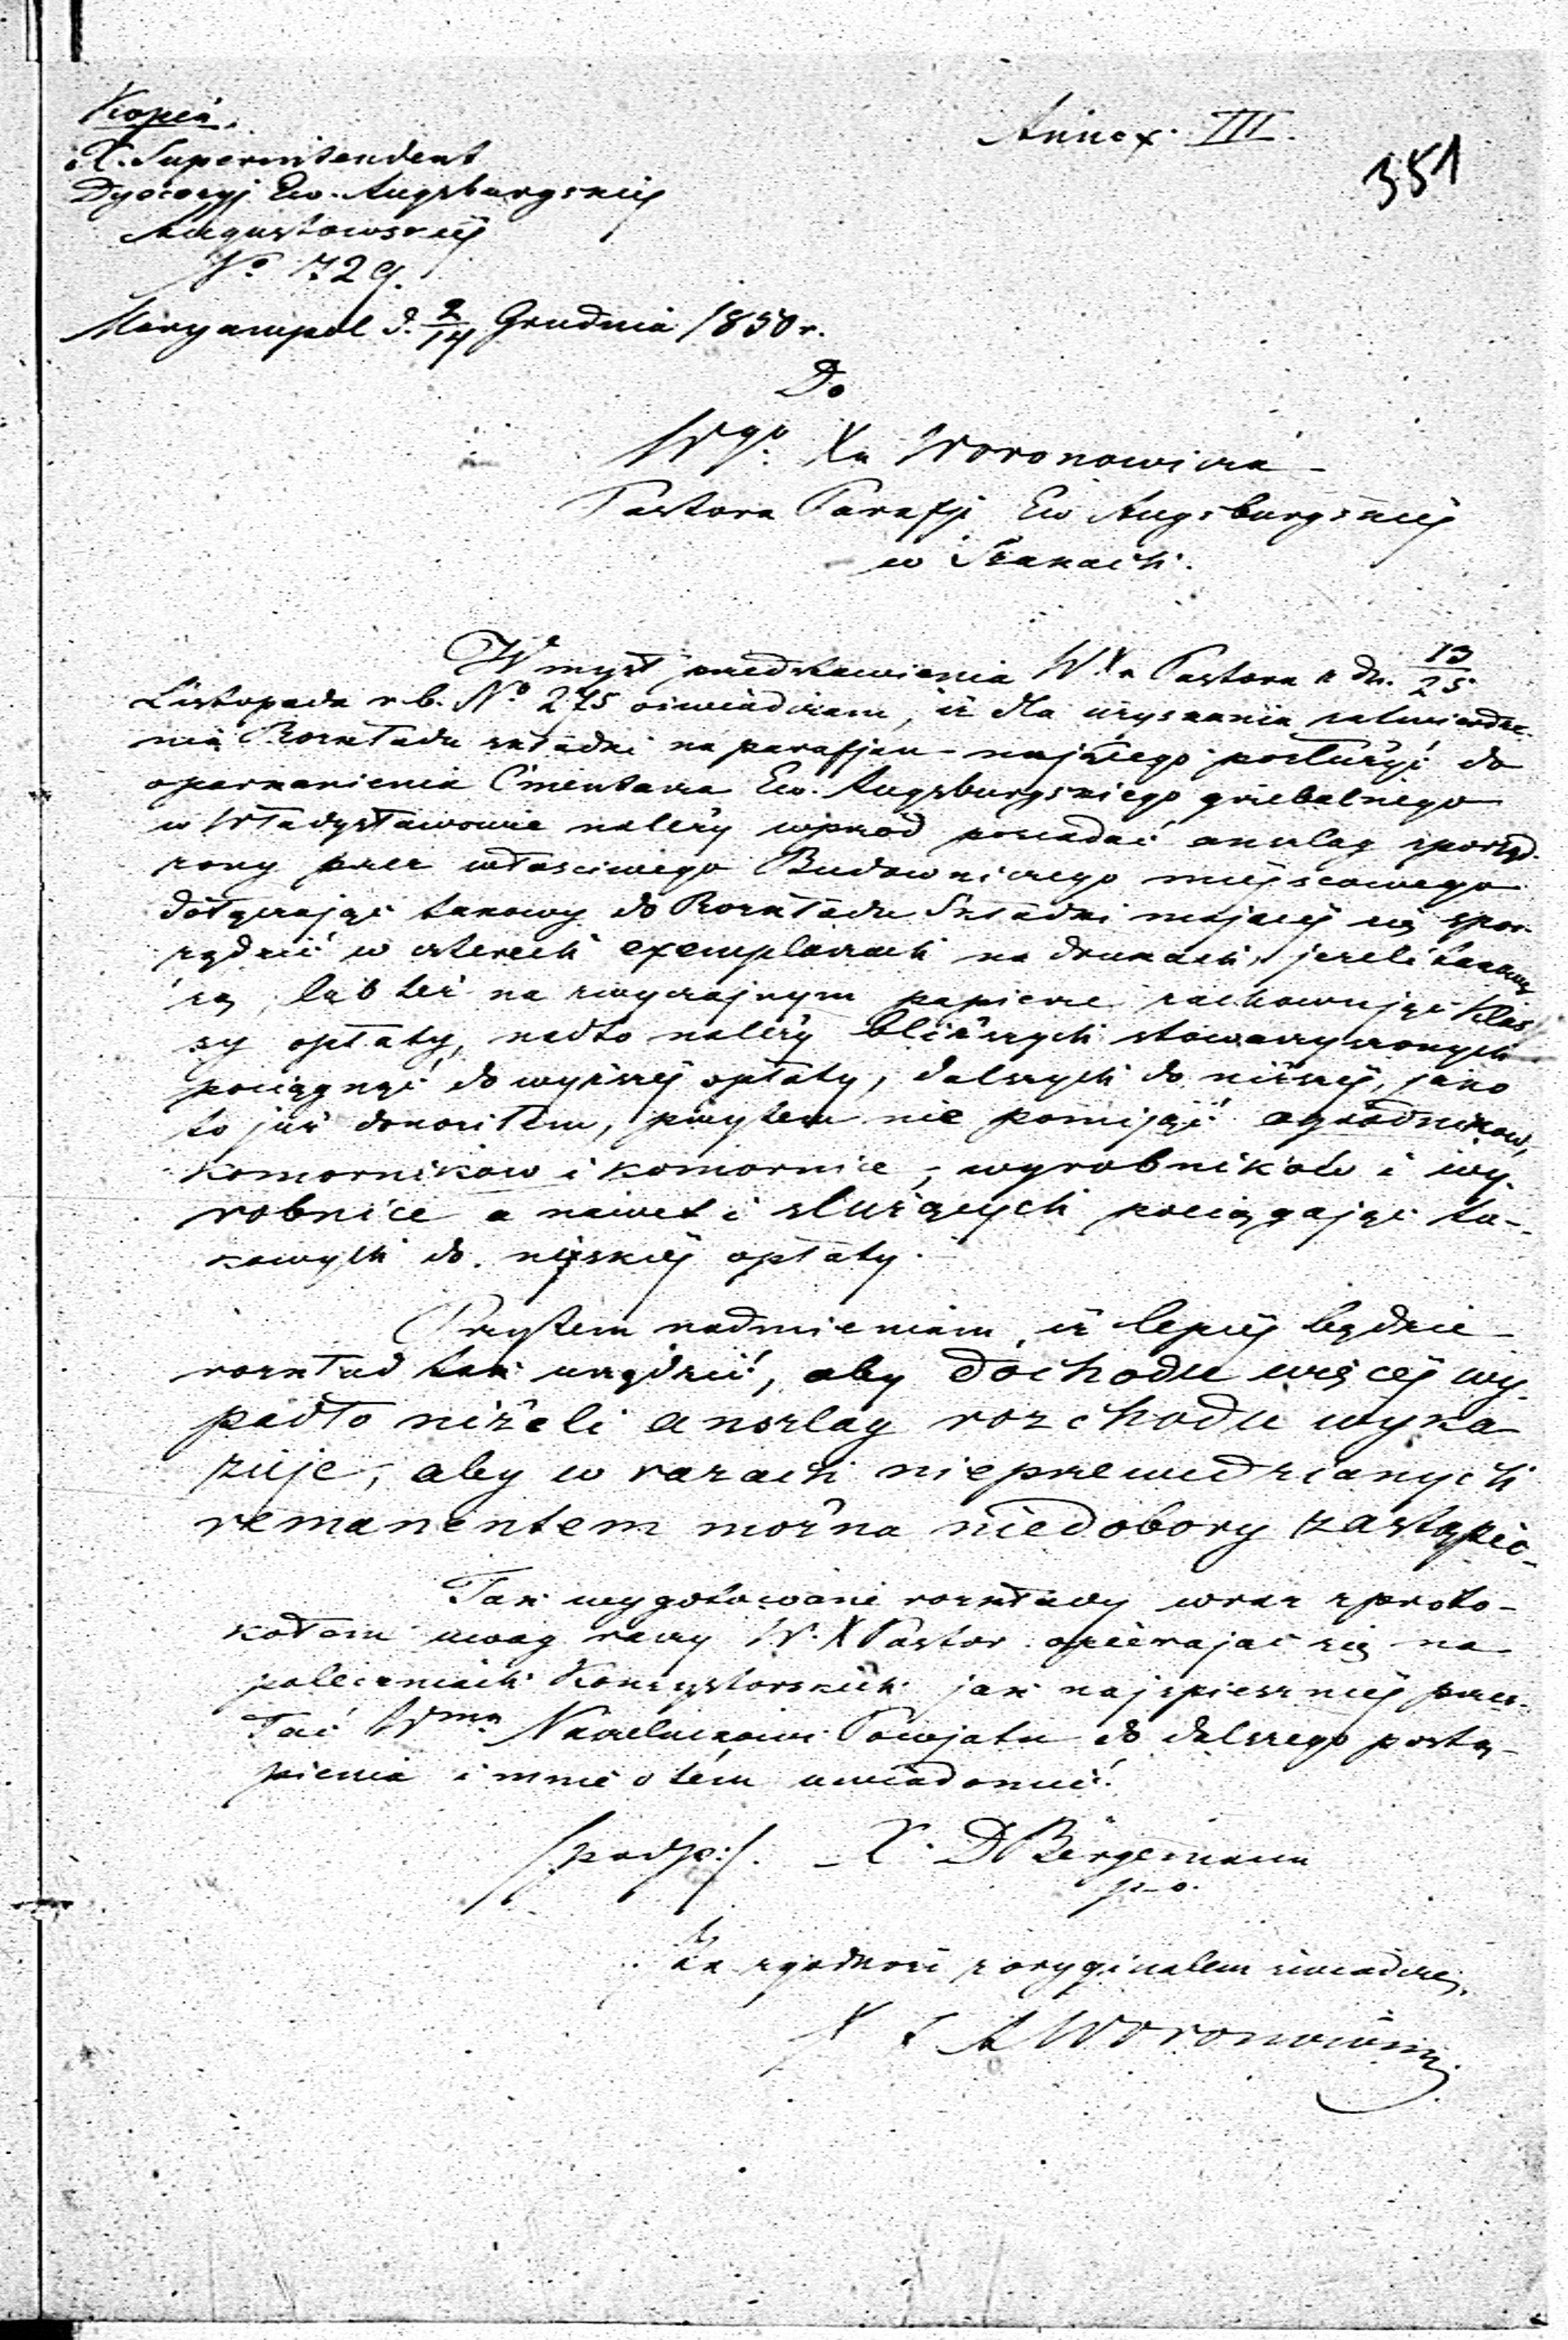 Kopia.
Annex. III.
351
X. Superintendent
Dyecezyj Ew. Augsburgskiéj
Augustowskiéj
No 729.
Maryampol d. 2/14 Grudnia 1850 r.
Do
Wgo. Xa Woronowicza
Pastora Parafji Ew Augsburgskiéj
w Szakach.
W myśl przedstawienia W. Xa Pastora z dn. 13/25
Listopada r. b. No 275 oświadczam, iż dla uzyskania zatwierdze-
nia Rozkładu składki na parafjan mającego posłużyć do
oparkanienia Cmentarza Ew. Augsburgskiego grzebalnego
w Władysławowie należy wprzód posiadać anszlag sporzą-
dzony przez właściwego Budowniczego miejscowego
dołączając takowy do Rozkładu Składki mającéj się spo-
rządzić w czterech exemplarzach na drukach, jeżeli takowe
są, lub też na zwyczajnym papierze zachowując klas-
sy opłaty, nadto należy bliższych stowarzyszonych
pociągnąć do wyższéj opłaty, dalszych do niższéj, jako
to już donosiłem, przytem nie pomijać ogrodników,
komorników i komornice, wyrobników i wy-
robnice a nawet i służących pociągając ta-
kowych do niskiéj opłaty.
Przytem nadmieniam, iż lepiéj będzie
rozkład tak urządzić, aby dochodu więcéj wy-
padło niżeli anszlag rozchodu wyka
zuje, aby w razach nieprzewidzianych
remanentem można niedobory zastąpić.
Tak wygotowane rozkłady wraz z proto-
kółem uwag raczy W. X Pastor opierając się na
poleceniach Konsystorskich jak najspieszniéj przes-
łać Wmu Naczelnikowi Powjatu do dalszego postą-
pienia i mnie o tém uwiadomić.
/podp:/. X. D Bergemann
p. o.
Za zgodność z oryginałem świadczę.
X A Woronowicz